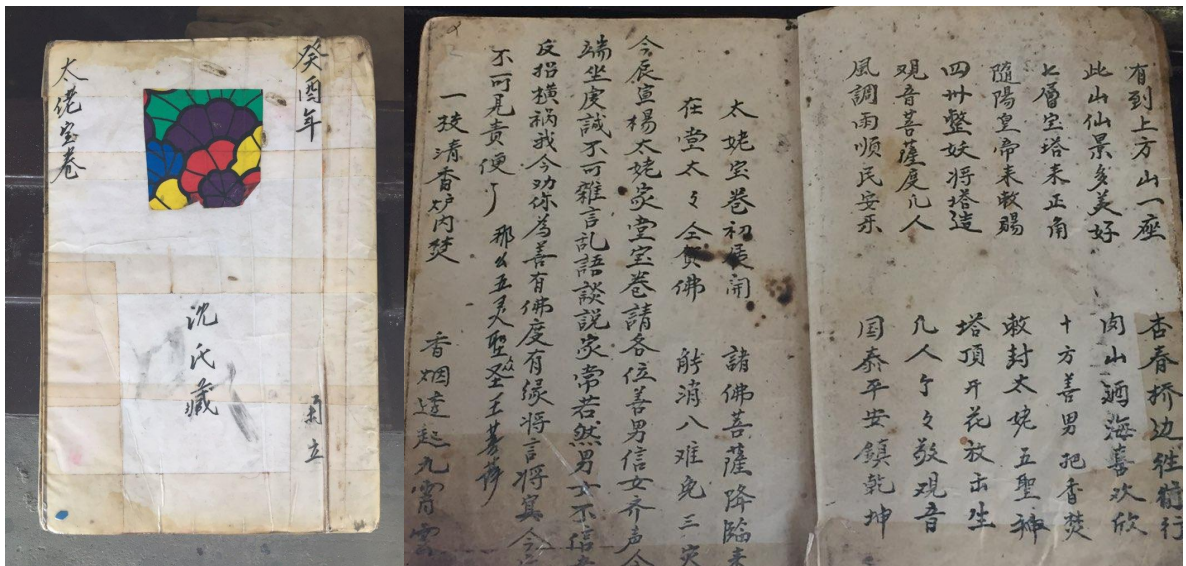 癸酉年
立
太佬宝卷
沈氏藏
有到上方山一座 杏春桥边往前行
此山仙景多美好 肉山酒海喜欢欣
七層宝塔来正角 十方善男把香焚
隨陽皇帝来敕賜 敕封太姥五聖神
四卅整妖将塔造 塔頂开花放古生
观音菩薩度凡人 凡人个々敬观音
風調雨順民安乐 国泰平安鎮乾坤
太姥宝卷初展闹 諸佛菩薩降臨来
在堂太々全賀佛 能消八难免三灾
今辰宣楊太姥家堂宝卷請各位善男信女齐声合
端坐虔誠不可雜言乱語談説家常若然男女不信
反招横祸我今劝你為善有佛度有缘将言将真今
不可見責便了 那么五灵聖众圣王菩萨
一枝清香炉内焚 香烟遠起九霄雲